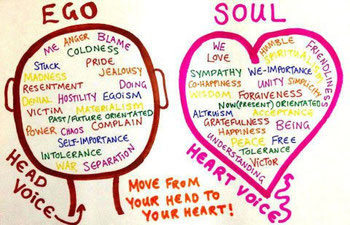 EGO
ME ANGER BLAME
COLDNESS
STUCK PRIDE
MADNESS JEALOUSY
RESENTMENT DOING
DENIAL HOSTILITY EGOISM
VICTIM MATERIALISM
PAST/FUTURE ORIENTATED
POWER CHAOS COMPLAIN
SELF-IMPORTANCE
INTOLERANCE
WAR SEPARATION
HEAD VOICE
SOUL
WE HUMBLE FRIENDLINESS
LOVE SPIRITUALISM
SYMPATHY WE-IMPORTANCE
CO-HAPPINESS UNITY SIMPLICITY
WISDOM FORGIVENESS
NOW(PRESENT) ORIENTATED
ALTRUISM ACCEPTANCE
GRATEFULNESS BEING
HAPPINESS
PEACE FREE
UNDERSTANDING TOLERANCE
VICTOR
HEART VOICE
MOVE FROM
YOUR HEAD TO
YOUR HEART!